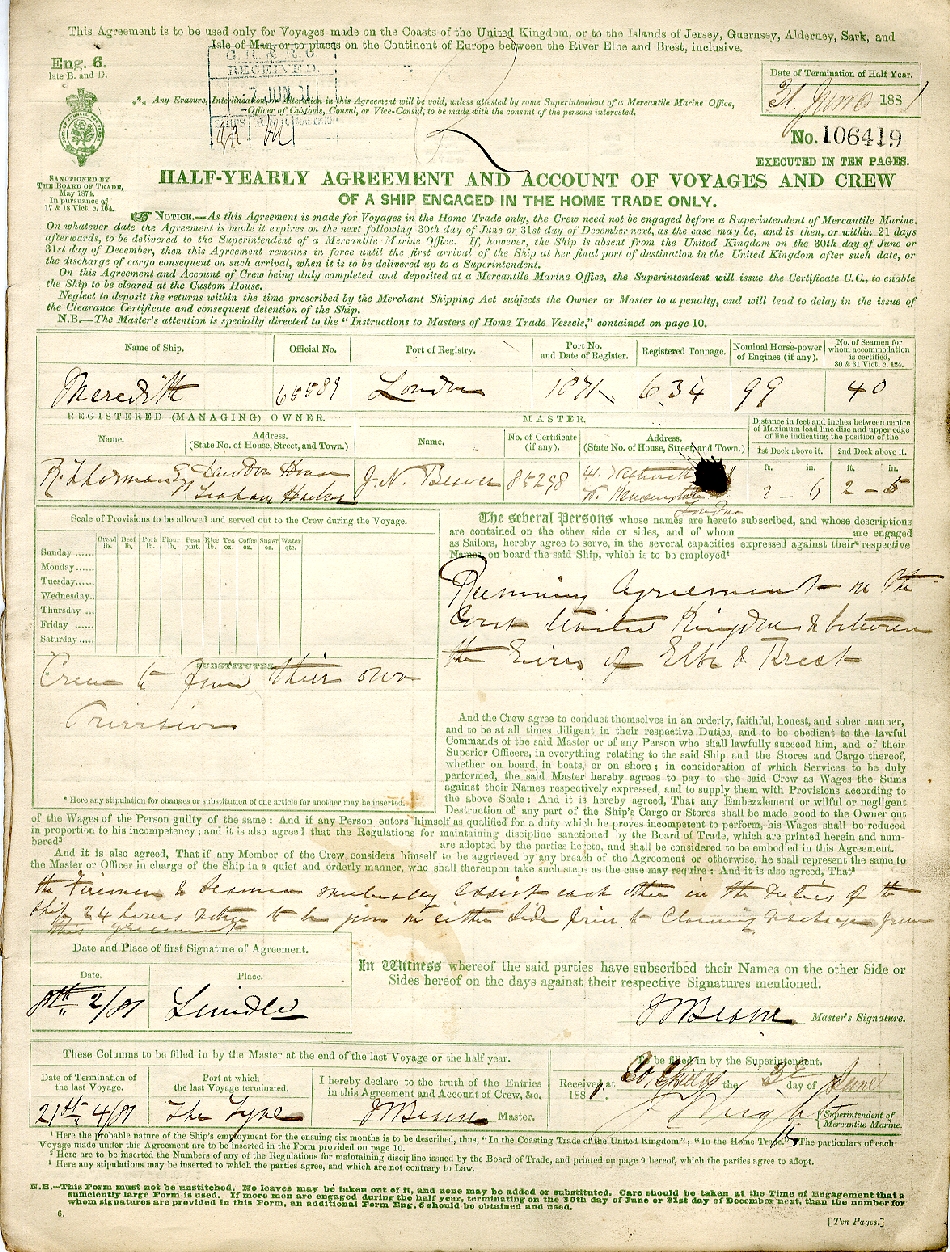 This Agreement is to be used only for Voyages made on the Coasts of the United Kingdom, or to the Islands of Jersey, Guernsey, Alderney, Sark, and
Isle of Man, or to places on the Continent of Europe between the River Elbe and Brest, inclusive.
Eng. 6.
late B. and D.
RECEIVED
JUN
Date of Termination of Half Year.
June 1881
*** Any Erasure, Interlineation, or Alteration in this Agreement will be void, unless attested by some Superintendent of a Mercantile Marine Office,
Officer of Customs, Consul, or Vice-Consul, to be made with the consent of the persons interested.
No. 106419
EXECUTED IN TEN PAGES.
SANCTIONED BY
THE BOARD OF TRADE,
May 1874,
In pursuance of
17 & 18 Vict. c. 104.
HALF-YEARLY AGREEMENT AND ACCOUNT OF VOYAGES AND CREW
OF A SHIP ENGAGED IN THE HOME TRADE ONLY.
NOTICE.—As this Agreement is made for Voyages in the Home Trade only, the Crew need not be engaged before a Superintendent of Mercantile Marine.
On whatever date the Agreement is made it expires on the next following 30th day of June or 31st day of December next, as the case may be, and is then, or within 21 days
afterwards, to be delivered to the Superintendent of a Mercantile Marine Office. If, however, the Ship is absent from the United Kingdom on the 30th day of June or
31st day of December, then this Agreement remains in force until the first arrival of the Ship at her final port of destination in the United Kingdom after such date, or
the discharge of cargo consequent on such arrival, when it is to be delivered up to a Superintendent.
On this Agreement and Account of Crew being duly completed and deposited at a Mercantile Marine Office, the Superintendent will issue the Certificate C.C., to enable
the Ship to be cleared at the Custom House.
Neglect to deposit the returns within the time prescribed by the Merchant Shipping Act subjects the Owner or Master to a penalty, and will lead to delay in the issue of
the Clearance Certificate and consequent detention of the Ship.
N.B.—The Master's attention is specially directed to the "Instructions to Masters of Home Trade Vessels," contained on page 10.
Name of Ship. Official No. Port of Registry. Port No. and Date of Register. Registered Tonnage. Nominal Horse-power of Engines (if any). No. of Seamen for whom accommodation is certified, 30 & 31 Vict. c. 124.
Meredith London 1871 634 99 40
REGISTERED (MANAGING) OWNER. MASTER. Distance in feet and inches between centre of Maximum load line disc and upper edge of line indicating the position of the
Name. Address. (State No. of House, Street, and Town.) Name. No. of Certificate (if any). Address. (State No. of House, Street, and Town.) 1st Deck above it. 2nd Deck above it.
ft. in. ft. in.
85298 2 6 2 - 5
London
Scale of Provisions to be allowed and served out to the Crew during the Voyage.
Sunday
Monday
Tuesday
Wednesday
Thursday
Friday
Saturday
SUBSTITUTES.
Crew to find their own
Provisions
* Here any stipulation for changes or substitution of one article for another may be inserted.
The several Persons whose names are hereto subscribed, and whose descriptions
are contained on the other side or sides, and of whom are engaged
as Sailors, hereby agree to serve, in the several capacities expressed against their respective
Names, on board the said Ship, which is to be employed¹
Running Agreement on the
Coast United Kingdom & between
the River of Elbe & Brest
And the Crew agree to conduct themselves in an orderly, faithful, honest, and sober manner,
and to be at all times diligent in their respective Duties, and to be obedient to the lawful
Commands of the said Master or of any Person who shall lawfully succeed him, and of their
Superior Officers, in everything relating to the said Ship and the Stores and Cargo thereof,
whether on board, in boats, or on shore; in consideration of which Services to be duly
performed, the said Master hereby agrees to pay to the said Crew as Wages the Sums
against their Names respectively expressed, and to supply them with Provisions according to
the above Scale: And it is hereby agreed, That any Embezzlement or wilful or negligent
Destruction of any part of the Ship's Cargo or Stores shall be made good to the Owner out
of the Wages of the Person guilty of the same: And if any Person enters himself as qualified for a duty which he proves incompetent to perform, his Wages shall be reduced
in proportion to his incompetency; and it is also agreed that the Regulations for maintaining discipline sanctioned by the Board of Trade, which are printed herein and num-
bered² are adopted by the parties hereto, and shall be considered to be embodied in this Agreement.
And it is also agreed, That if any Member of the Crew considers himself to be aggrieved by any breach of the Agreement or otherwise, he shall represent the same to
the Master or Officer in charge of the Ship in a quiet and orderly manner, who shall thereupon take such steps as the case may require: And it is also agreed, That³
the Firemen & Seamen mutually assist each other in the Duties of the
Ship 24 hours notice to be given on either side prior to Claiming Discharge from
this agreement
Date and Place of first Signature of Agreement.
Date. Place.
8th 2/81
In Witness whereof the said parties have subscribed their Names on the other Side or
Sides hereof on the days against their respective Signatures mentioned.
Master's Signature.
These Columns to be filled in by the Master at the end of the last Voyage or the half year.
To be filled in by the Superintendent.
Date of Termination of the last Voyage. Port at which the last Voyage terminated. I hereby declare to the truth of the Entries in this Agreement and Account of Crew, &c.
Received at the day of June
1881.
The Tyne Master. Superintendent of Mercantile Marine.
¹ Here the probable nature of the Ship's employment for the ensuing six months is to be described, thus, "In the Coasting Trade of the United Kingdom"; "In the Home Trade." The particulars of each
Voyage made under this Agreement are to be inserted in the Form provided on page 10.
² Here are to be inserted the Numbers of any of the Regulations for maintaining discipline issued by the Board of Trade, and printed on page 9 hereof, which the parties agree to adopt.
³ Here any stipulations may be inserted to which the parties agree, and which are not contrary to Law.
N.B.—This Form must not be unstitched. No leaves may be taken out of it, and none may be added or substituted. Care should be taken at the Time of Engagement that a
sufficiently large Form is used. If more men are engaged during the half year, terminating on the 30th day of June or 31st day of December next, than the number for
whom signatures are provided in this Form, an additional Form Eng. 6 should be obtained and used.
6.
[Ten Pages.]